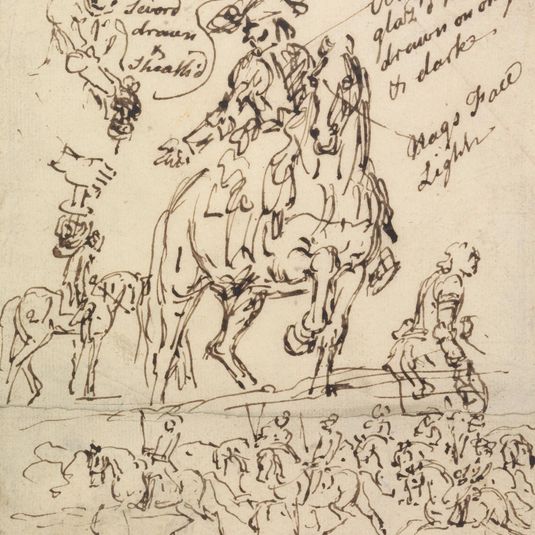 Sword
drawn
&
Sheath'd
glaz'd
drawn on only
& dark
Nags Face
Light